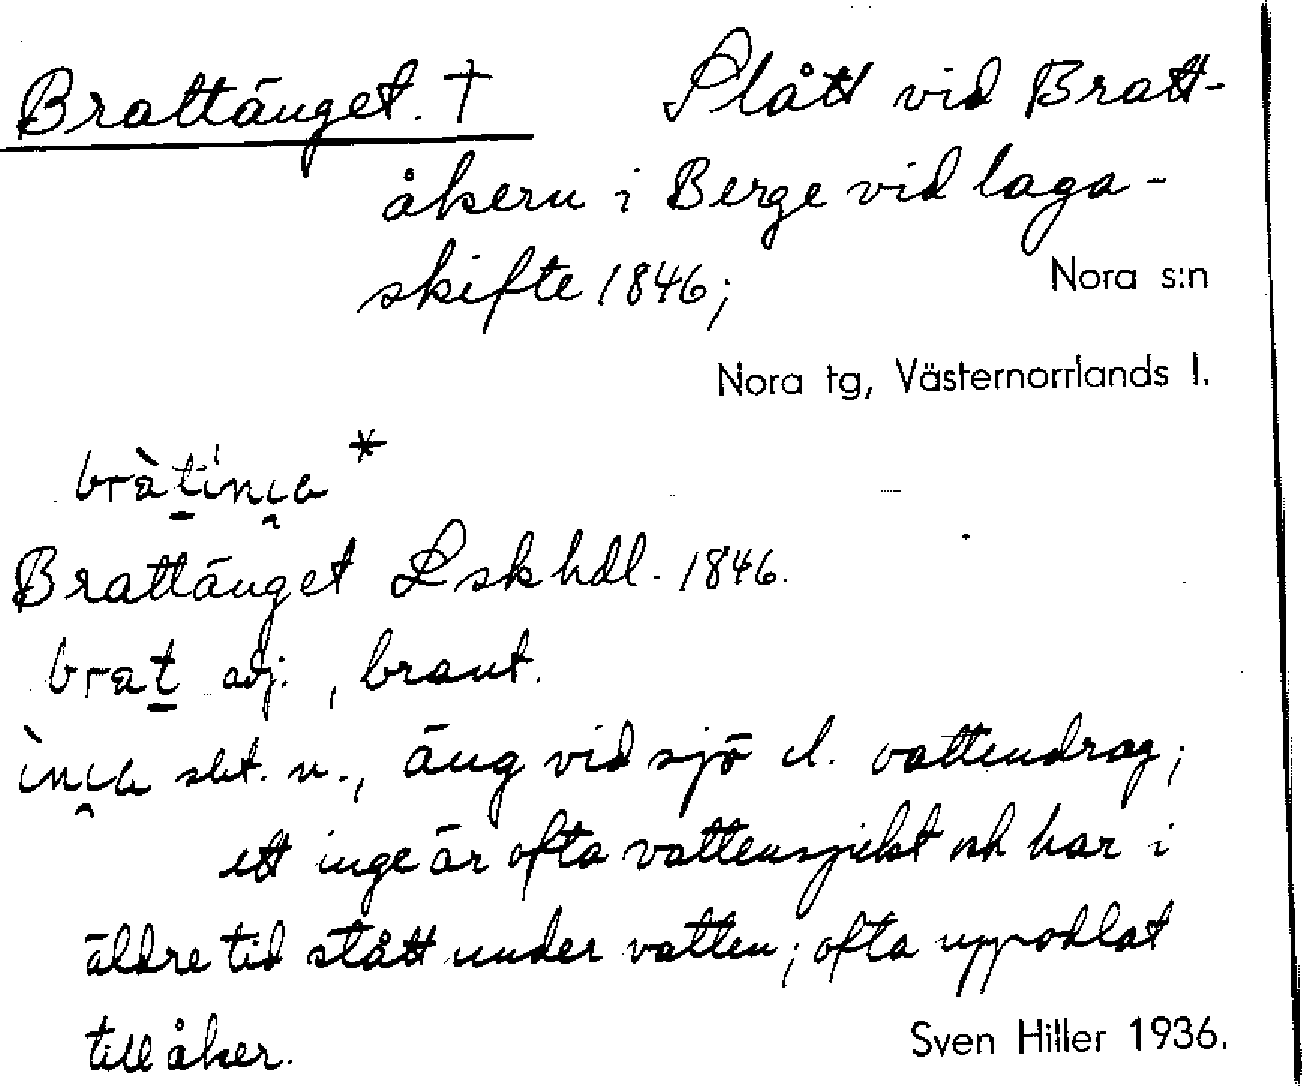 Brattänget. † Slått vid Bratt-
åkern i Berge vid laga-
skifte 1846;
Nora s:n
Nora tg, Västernorrlands l.
Brattänget Lskhdl. 1846.
brat adj., brant.
sbt. n., äng vid sjö el. vattendrag;
ett inge är ofta vattensjukt och har i
äldre tid stått under vatten; ofta uppodlat
till åker.
Sven Hiller 1936.